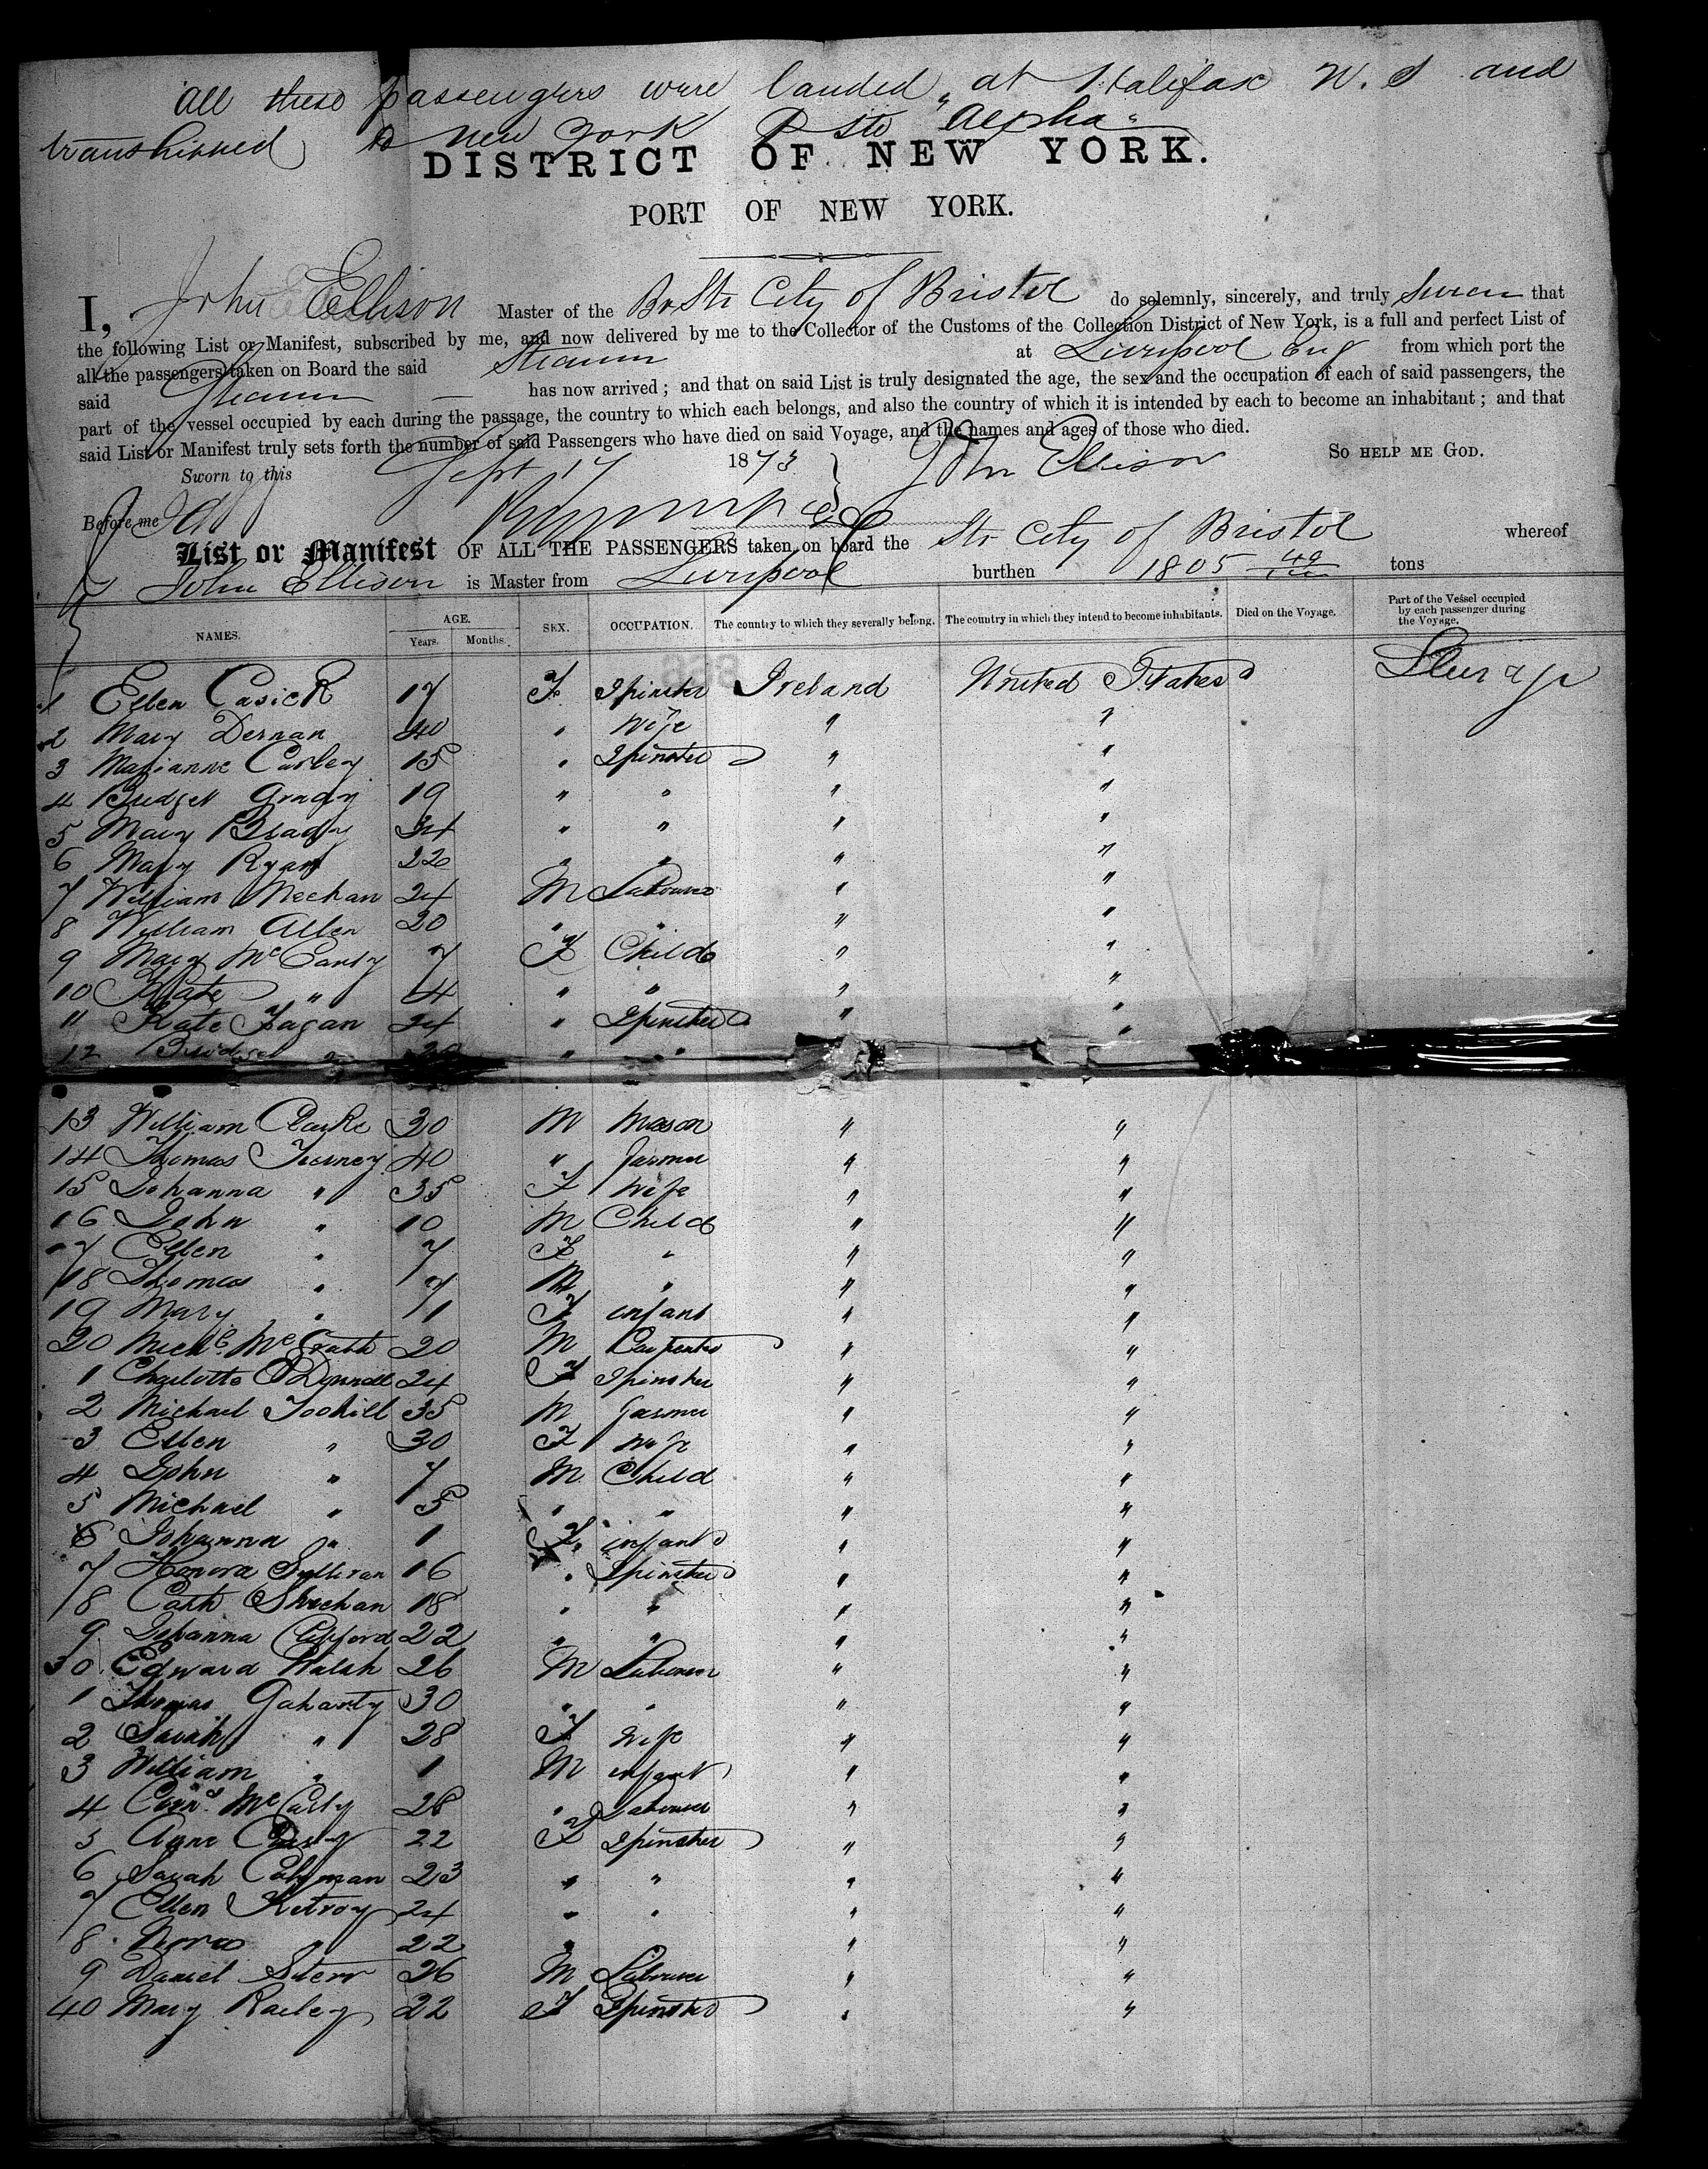 All these passengers were landed at Halifax N. S and
transhipped to New York P Str "Alpha"
DISTRICT OF NEW YORK.
PORT OF NEW YORK.
I, John Ellison Master of the Br Str City of Bristol do solemnly, sincerely, and truly swear that
the following List or Manifest, subscribed by me, and now delivered by me to the Collector of the Customs of the Collection District of New York, is a full and perfect List of
all the passengers taken on Board the said Steamer at Liverpool Eng from which port the
said Steamer has now arrived; and that on said List is truly designated the age, the sex and the occupation of each of said passengers, the
part of the vessel occupied by each during the passage, the country to which each belongs, and also the country of which it is intended by each to become an inhabitant; and that
said List or Manifest truly sets forth the number of said Passengers who have died on said Voyage, and the names and ages of those who died.
So HELP ME GOD.
Sworn to this Sept 17 1873 John Ellison
Before me
List or Manifest OF ALL THE PASSENGERS taken on board the Str City of Bristol whereof
John Ellison is Master from Liverpool burthen 1805 49/100 tons
NAMES. AGE. Years. Months. SEX. OCCUPATION. The country to which they severally belong. The country in which they intend to become inhabitants. Died on the Voyage. Part of the Vessel occupied by each passenger during the Voyage.
1 Ellen Casick 17 F Spinster Ireland United States
2 Mary Dernan 40 " Wife " "
3 Marianne Curley 15 " Spinster " "
4 Bridget Grady 19 " " " "
5 Mary Brady 34 " " " "
6 Mary Ryan 22 " " " "
7 William Meehan 24 M Labourer " "
8 William Allen 20 " " " "
9 Mary Mc 7 F Child " "
10 Kate " 4 " " " "
11 Kate Fagan 24 " Spinster " "
12 Bridget " " " "
13 William Clarke 30 M Mason " "
14 Thomas Tierney 40 " Farmer " "
15 Johanna " 35 F Wife " "
16 John " 10 M Child " "
17 Ellen " 7 F " " "
18 Thomas " M " " "
19 Mary " 1 F infant " "
20 Michl McGrath 20 M Carpenter " "
1 Charlotte O'Donnell 24 F Spinster " "
2 Michael Toohill 35 M Farmer " "
3 Ellen " 30 F Wife " "
4 John " 7 M Child " "
5 Michael " 5 " " " "
6 Johanna " 1 F infant " "
7 Honora Sullivan 16 " Spinster " "
8 Cath Sheehan 18 " " " "
9 Johanna Clifford 22 " " " "
30 Edward Walsh 26 M Labourer " "
1 Thomas Gaharty 30 " " " "
2 Sarah " 28 F Wife " "
3 William " 1 M infant " "
4 Mc Carty 28 " Labourer " "
5 Anne 22 F Spinster " "
6 Sarah Colyman 23 " " " "
7 Ellen Kitroy 24 " " " "
8 Nora " 22 " " " "
9 Daniel 26 M Labourer " "
40 Mary Railey 22 F Spinster " "